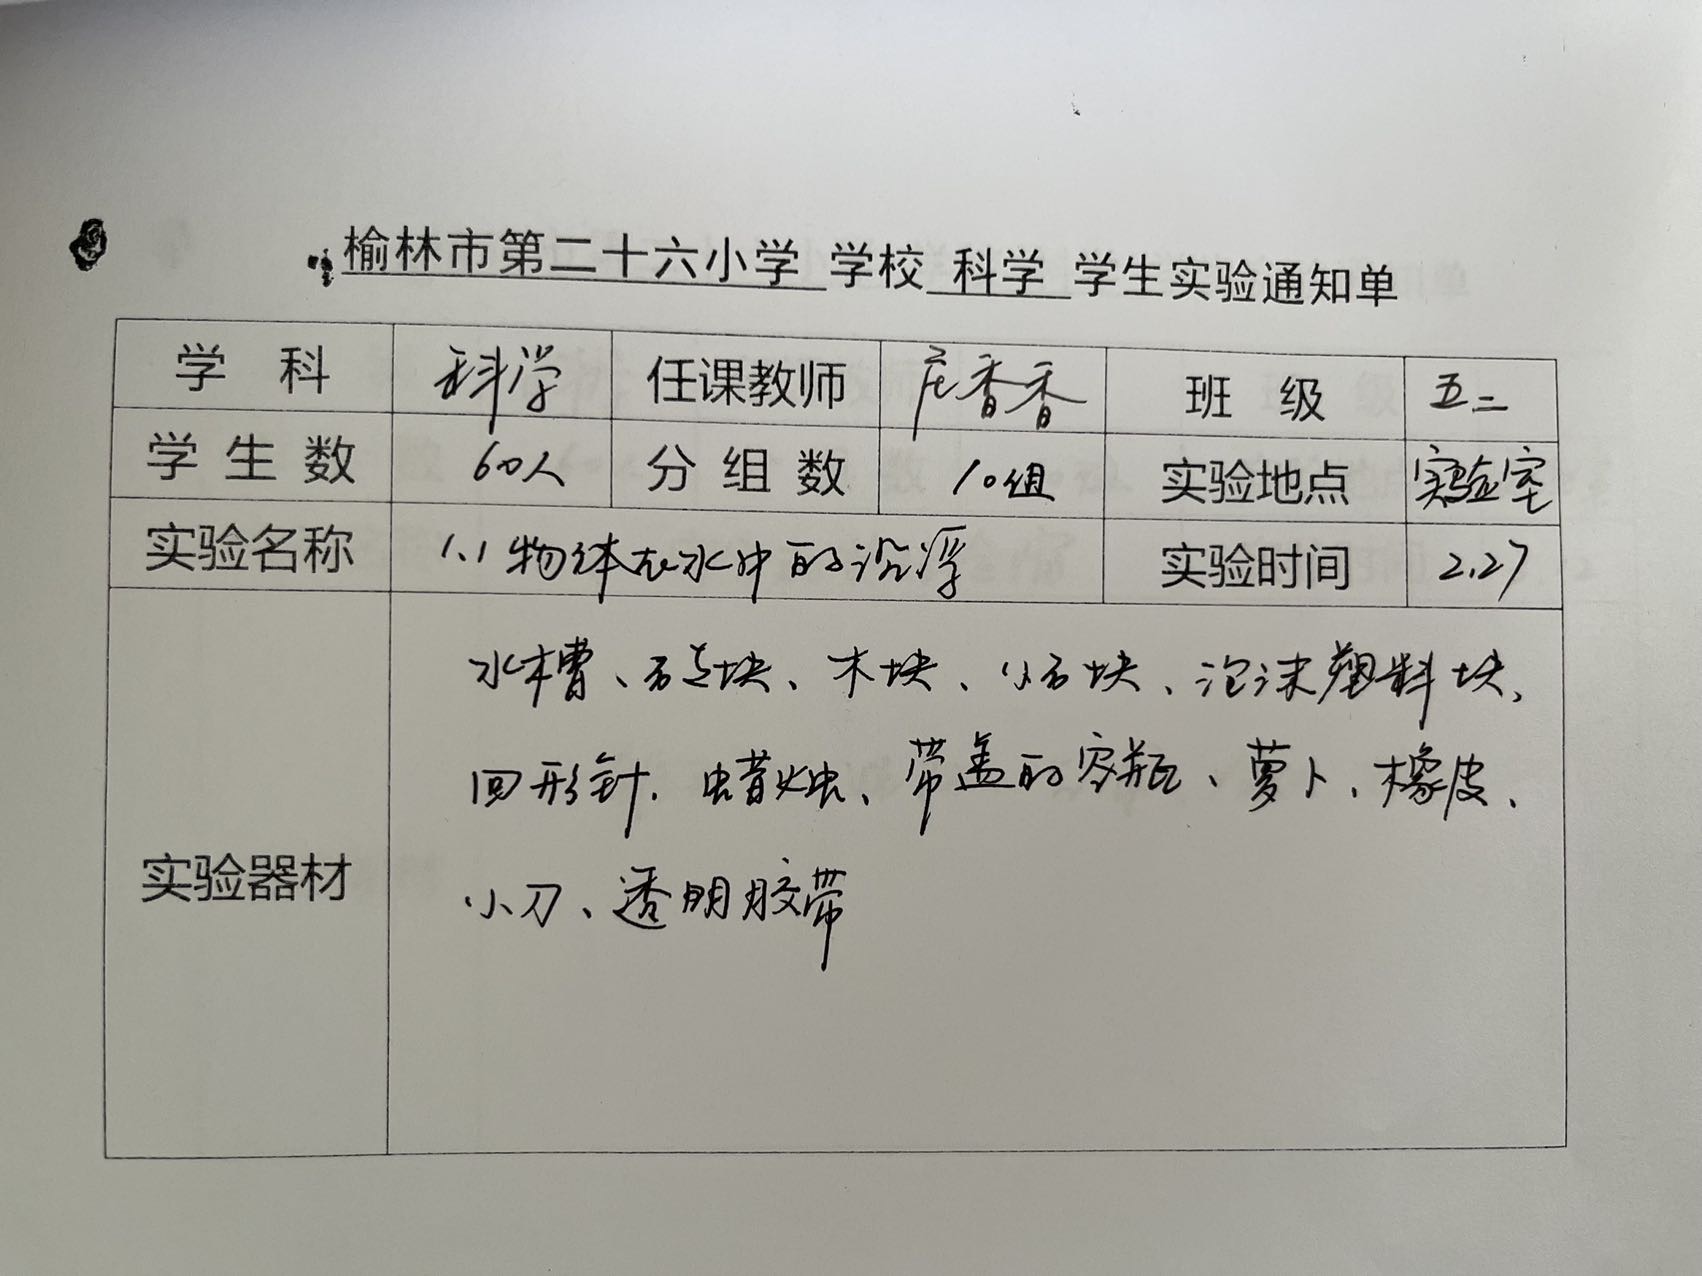 榆林市第二十六小学 学校 科学 学生实验通知单
学 科 科学 任课教师 庄香香 班 级 五二
学 生 数 60人 分 组 数 10组 实验地点 实验室
实验名称 1.1物体在水中的沉浮 实验时间 2.27
水槽、砖块、木块、小石块、泡沫塑料块、
回形针、蜡烛、带盖的空瓶、萝卜、橡皮、
实验器材
小刀、透明胶带